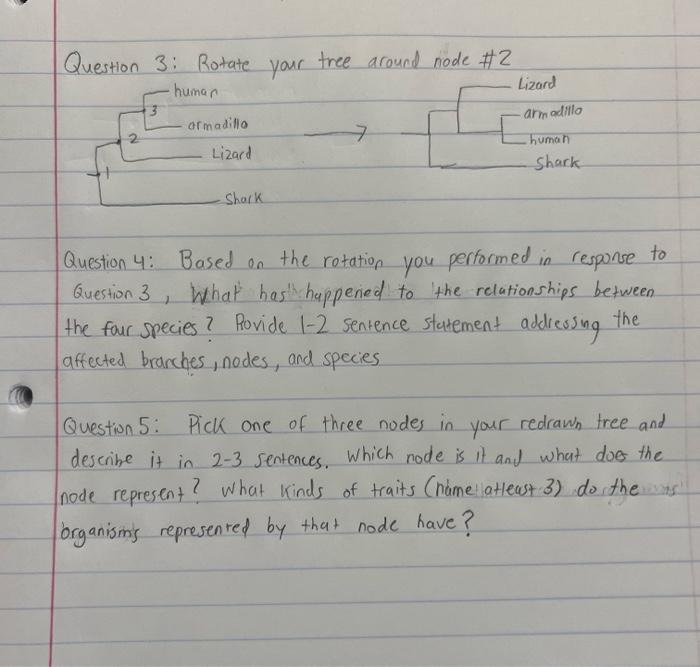 Question 3: Rotate your tree around node #2
human
3
armadillo
2
Lizard
1
Shark
Lizard
armadillo
human
Shark
Question 4: Based on the rotation you performed in response to
Question 3, What has happened to the relationships between
the four species? Provide 1-2 sentence statement addressing the
affected branches, nodes, and species
Question 5: Pick one of three nodes in your redrawn tree and
describe it in 2-3 sentences. Which node is it and what does the
node represent? What kinds of traits (name atleast 3) do the
organisms represented by that node have?